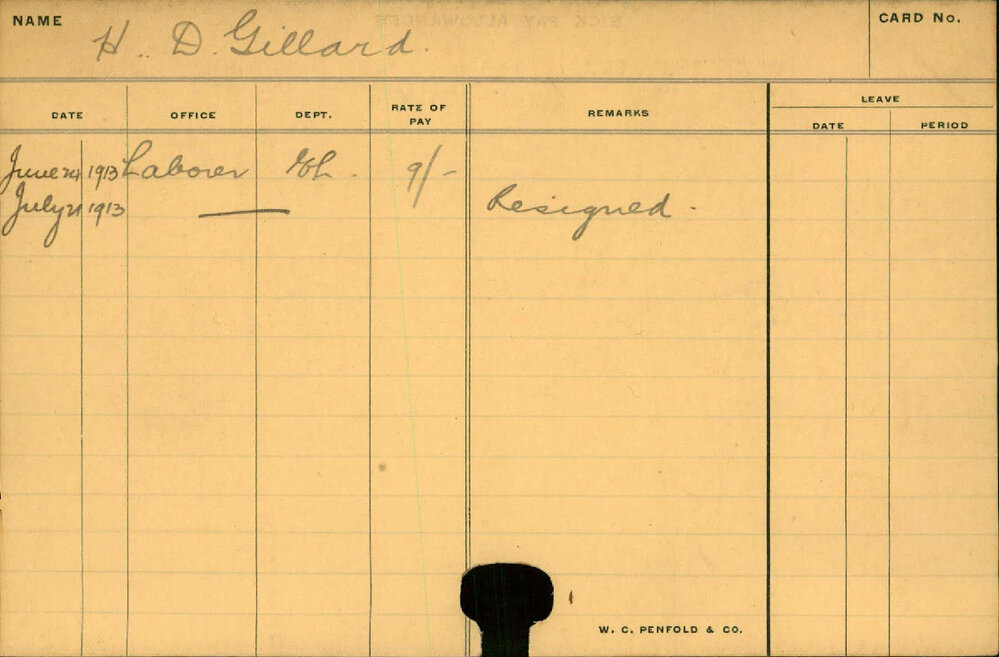 NAME
H. D. Gillard.
CARD No.
DATE OFFICE DEPT. RATE OF PAY REMARKS LEAVE
DATE PERIOD
June 24 1913 Laborer 9/-
July 21 1913 — Resigned.
W. C. PENFOLD & CO.